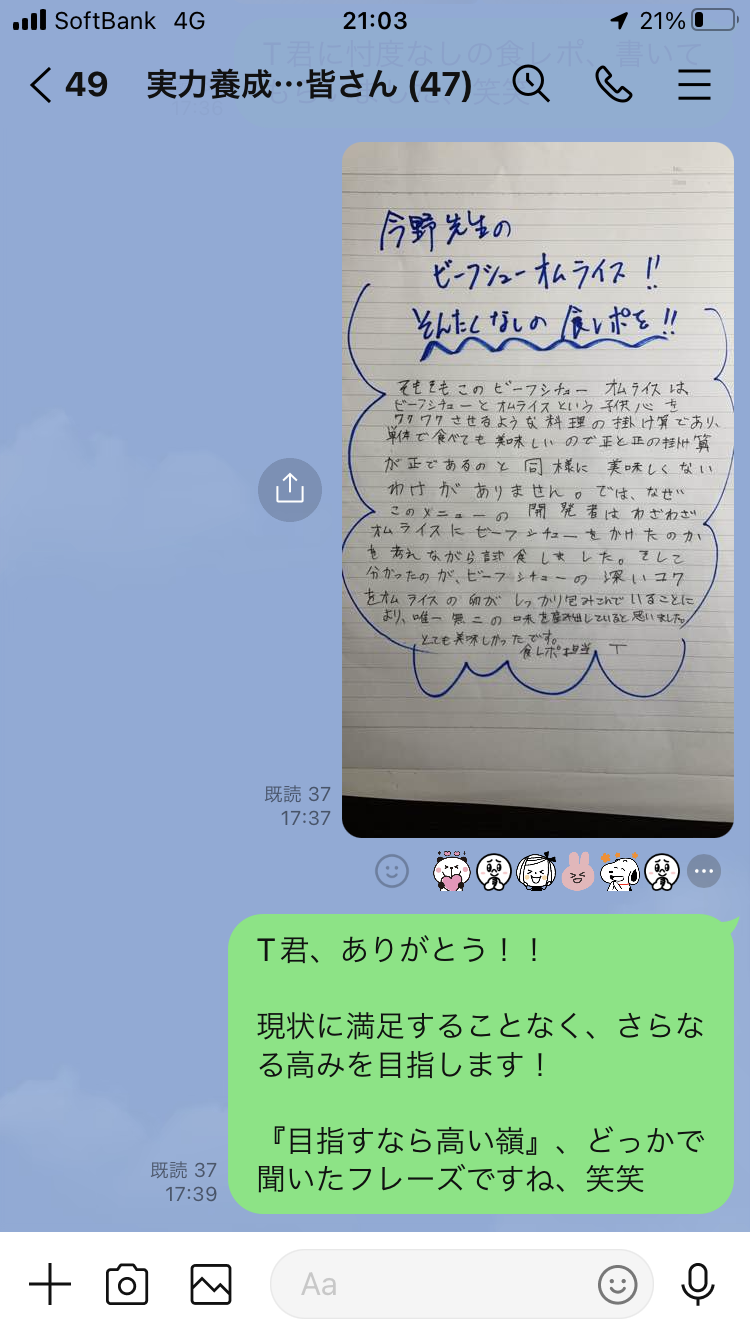 SoftBank 4G 21:03 21%
T君に忖度なしの食レポ、書いて
49 実力養成…皆さん (47)
17:36
今野先生の
ビーフシューオムライス!!
そんたくなしの食レポを!!
そもそもこのビーフシチューオムライスは
ビーフシチューとオムライスという子供心を
ワクワクさせるような料理の掛け算であり、
単体で食べても美味しいので正と正の掛け算
が正であるのと同様に美味しくない
わけがありません。では、なぜ
このメニューの開発者はわざわざ
オムライスにビーフシチューをかけたのか
を考えながら試食しました。そして
分かったのが、ビーフシチューの深いコク
をオムライスの卵がしっかり包みこんでいることに
より、唯一無二の味を産み出していると思いました。
とても美味しかったです。
食レポ担当 T
既読 37
17:37
T君、ありがとう！！
現状に満足することなく、さらな
る高みを目指します！
『目指すなら高い嶺』、どっかで
聞いたフレーズですね、笑笑
既読 37
17:39
Aa